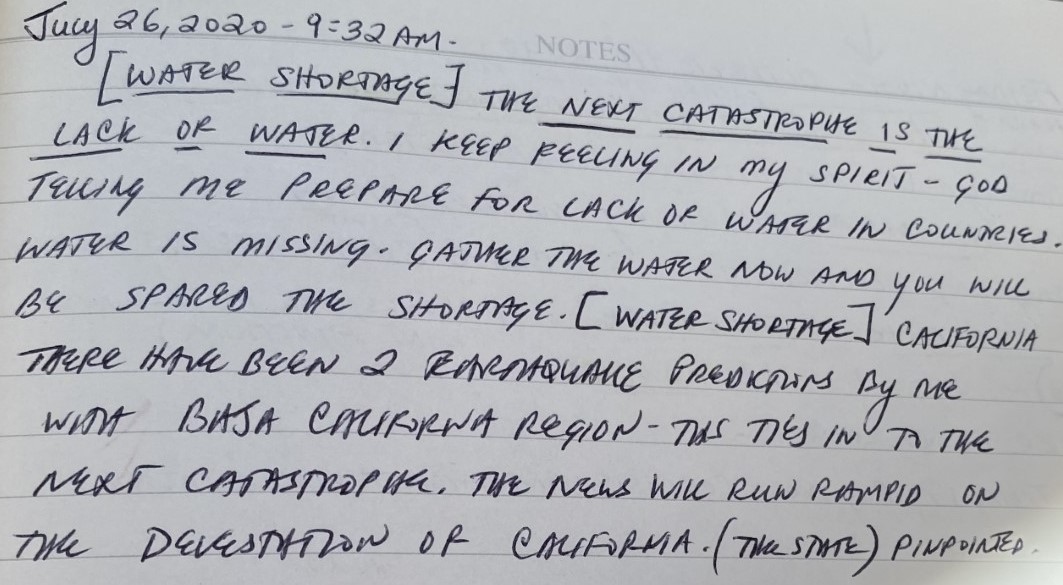 July 26, 2020 - 9:32 AM.
NOTES
[WATER SHORTAGE] THE NEXT CATASTROPHE IS THE
LACK OF WATER. I KEEP FEELING IN MY SPIRIT - GOD
TELLING ME PREPARE FOR LACK OF WATER IN COUNTRIES.
WATER IS MISSING. GATHER THE WATER NOW AND YOU WILL
BE SPARED THE SHORTAGE. [WATER SHORTAGE] CALIFORNIA
THERE HAVE BEEN 2 EARTHQUAKE PREDICTIONS BY ME
WITH BAJA CALIFORNIA REGION - THIS TIES IN TO THE
NEXT CATASTROPHE. THE NEWS WILL RUN RAMPID ON
THE DEVESTATION OF CALIFORNIA. (THE STATE) PINPOINTED.